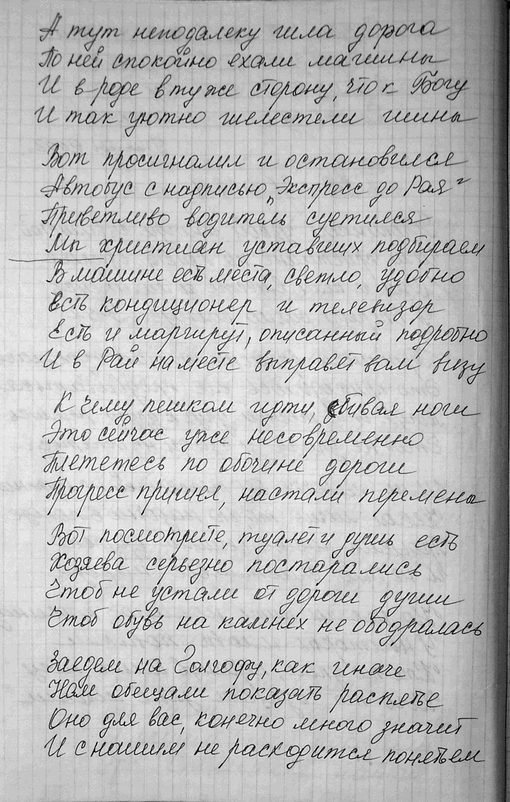 А тут неподалеку шла дорога
По ней спокойно ехали машины
И в роде в туже сторону, что к Богу
И так уютно шелестели шины
Вот просигналил и остановился
Автобус с надписью „Экспресс до Рая"
Приветливо водитель суетился
Мы христиан уставших подбираем
В машине есть места, светло, удобно
Есть кондиционер и телевизор
Есть и маршрут, описанный подробно
И в Рай на месте выправят вам визу
К чему пешком идти, сбивая ноги
Это сейчас уже несовременно
Плететесь по обочине дороги
Прогресс пришел, настали перемены
Вот посмотрите, туалет и душь есть
Хозяева серьезно постарались
Чтоб не устали от дороги души
Чтоб обувь на камнях не ободралась
Заедем на Голгофу, как иначе
Нам обещали показать распятье
Оно для вас, конечно много значит
И с нашим не расходится понятьем